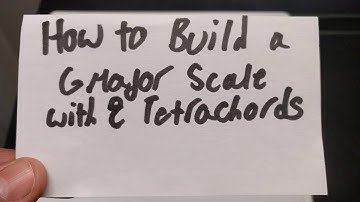 How to Build a
G Major Scale
with 2 Tetrachords